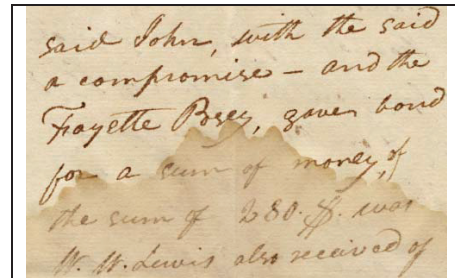 said John, with the said
a compromise – and the
Fayette Posey, gave bond
for a sum of money, of
the sum of 280.$. was
W. W. Lewis also received of